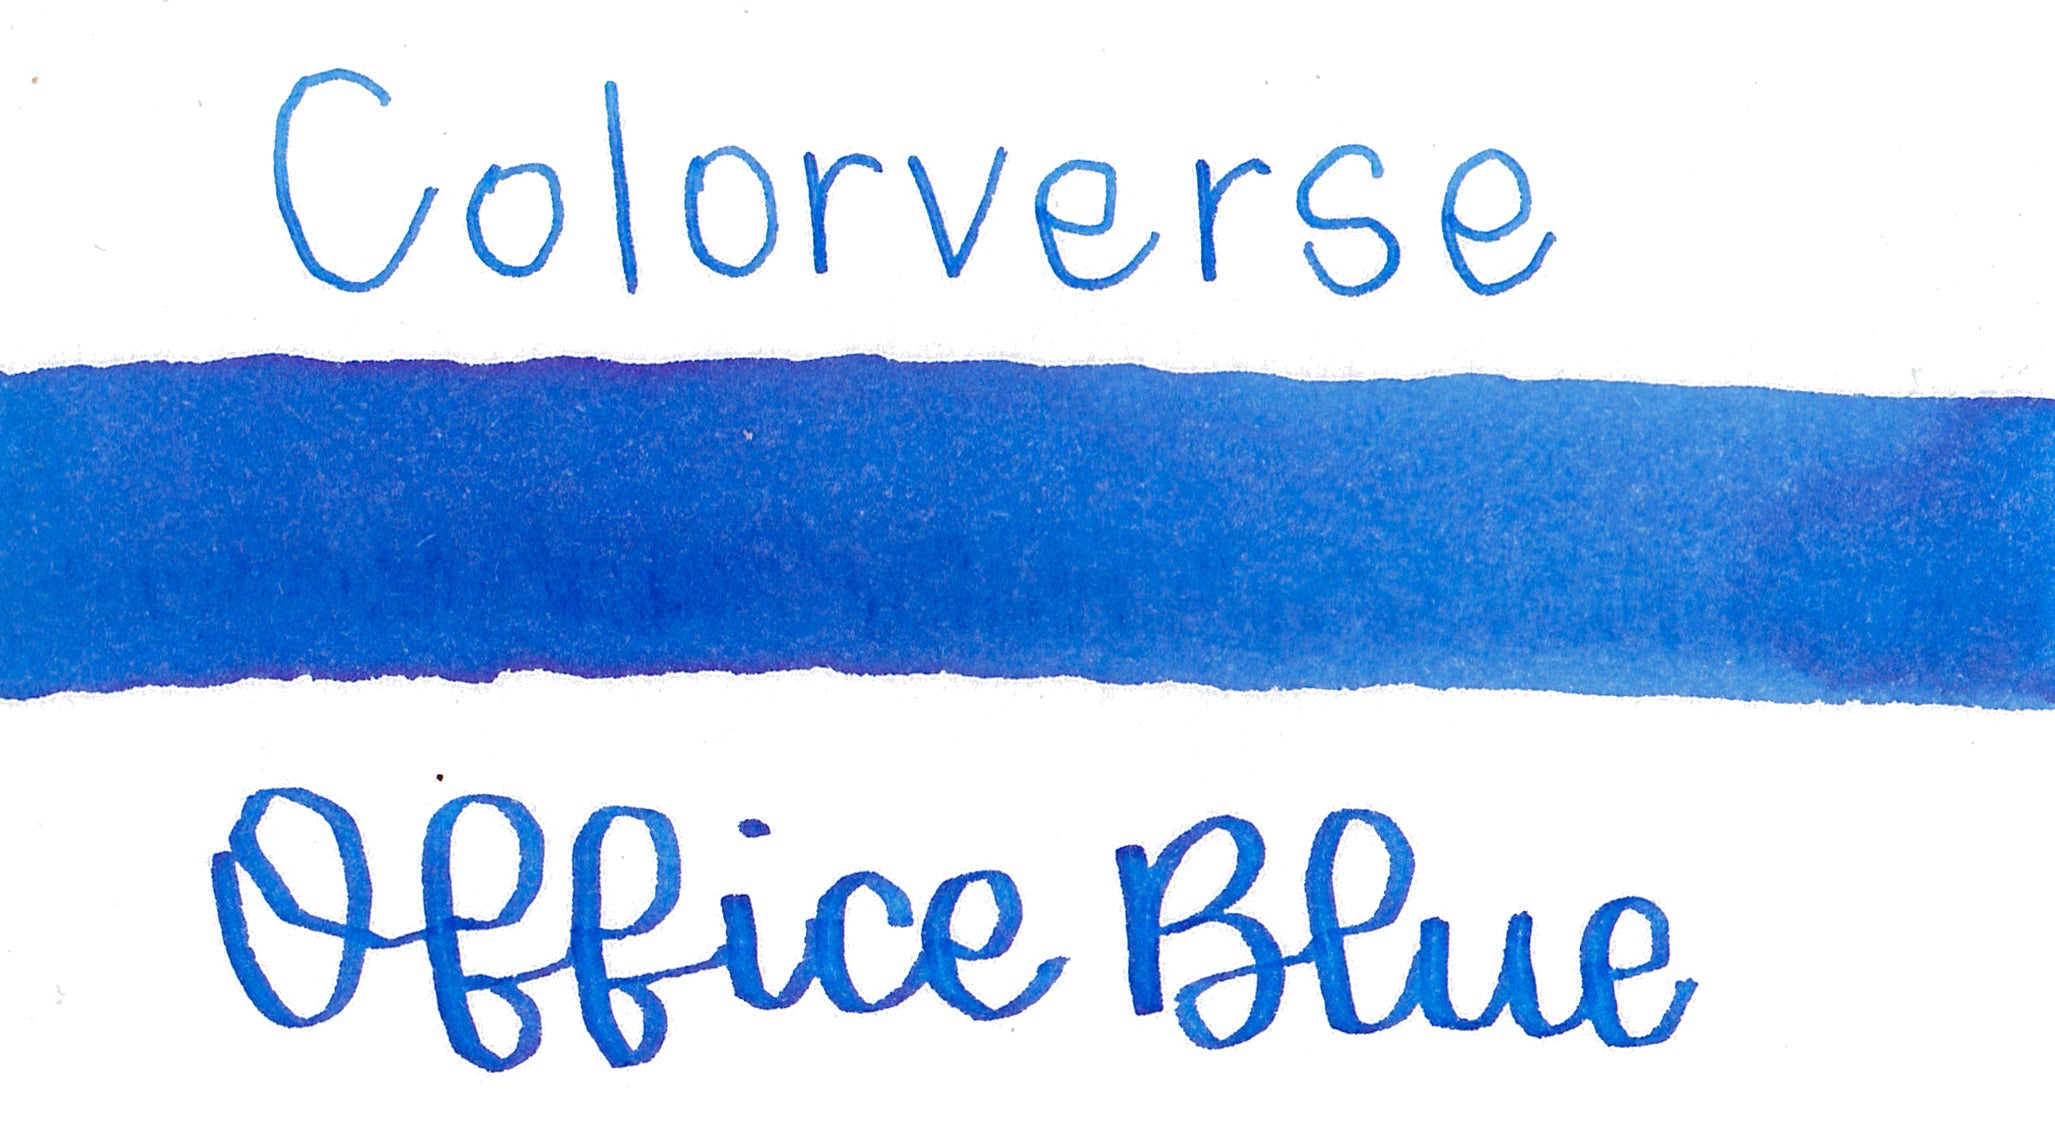 Colorverse
Office Blue